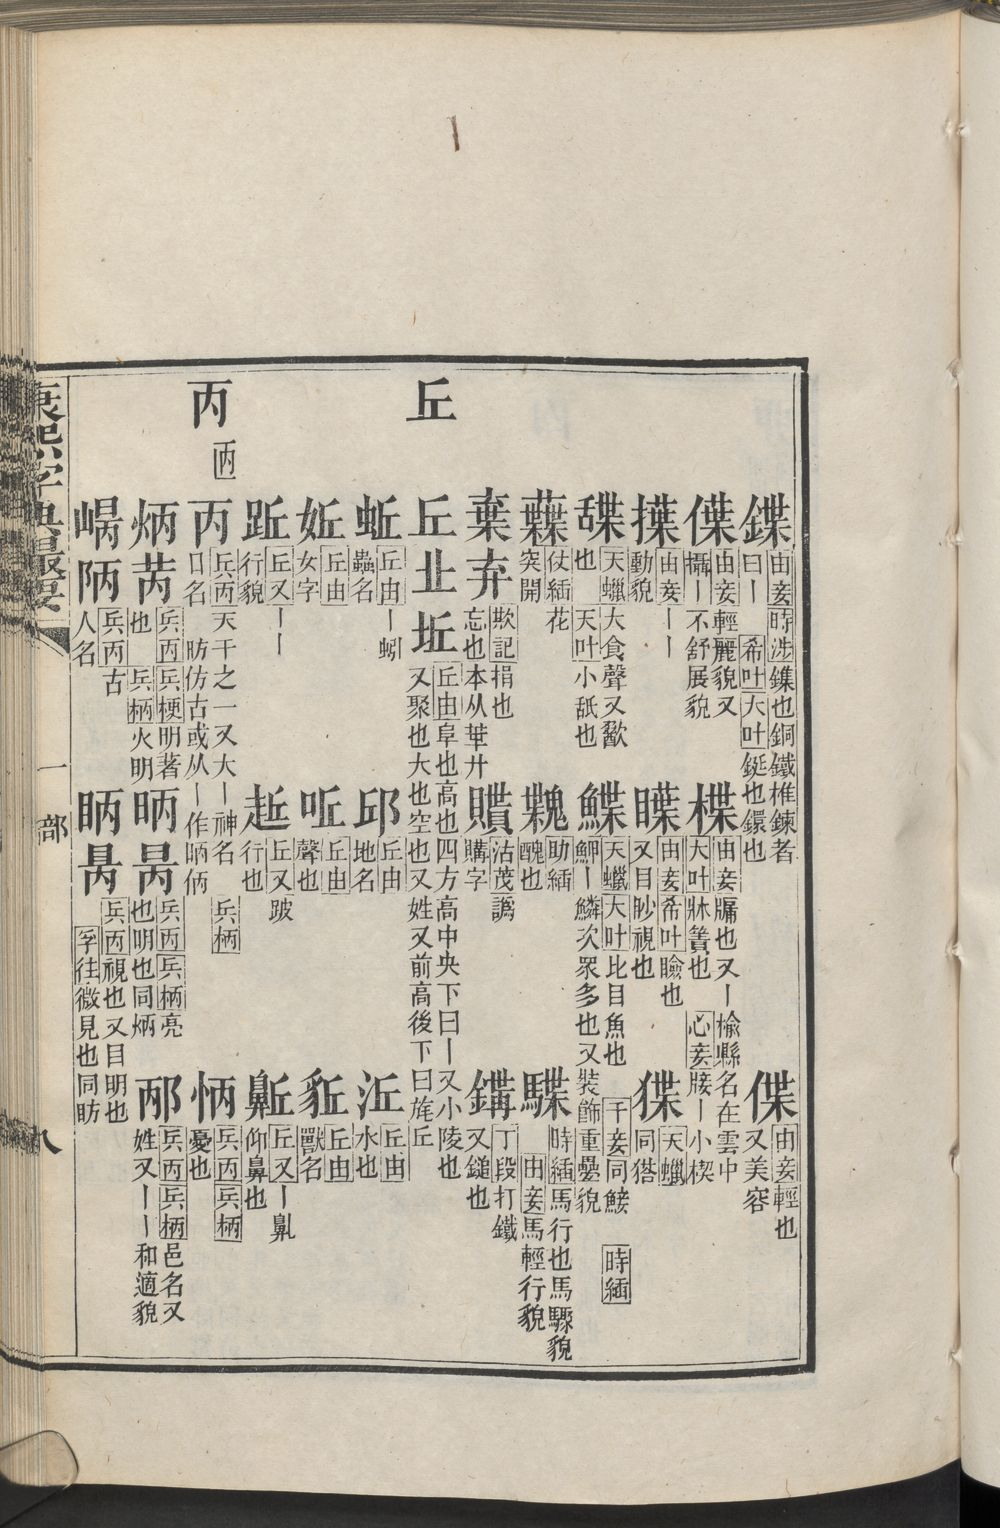 鍱 由妾 時涉 鏶也銅鐵椎鍊者曰丨 希叶 大叶 鋌也鐶也
偞 由妾 輕也又美容
僷 由妾 輕麗貌又攝丨不舒展貌
楪 由妾 牖也又丨榆縣名在雲中 大叶 牀簀也 心妾 㨗丨小楔
擛 由妾 丨丨動貌
瞸 由妾 希叶 瞼也又目眇視也
㹎 天蠟 同猲
䑜 天蠟 大食聲又歠也 天叶 小舐也
鰈 天蠟 大叶 比目魚也 千妾 同鯜 時緬 魻丨鱗次眾多也又裝飾重疊貌
仗緬 花突開
助緬 醜也
時緬 馬行也馬驟貌 由妾 馬輕行貌
棄弃 欺記 捐也忘也本从華廾
沽茂 譌購字
丁段 打鐵又鎚也
丘
丘北坵 丘由 阜也高也四方高中央下曰丨又小陵也又聚也大也空也又姓又前高後下曰旄丘
蚯 丘由 丨蚓蟲名
邱 丘由 地名
泟 丘由 水也
㚱 丘由 女字
㕤 丘由 聲也
丘由 獸名
丘又 丨丨行貌
丘又 跛行也
丘又 丨鼽仰鼻也
丙
丙 兵丙 天干之一又大丨神名 兵柄 日名 昞仿古或从丨作昞㑂
怲 兵丙 兵柄 憂也
炳苪 兵丙 兵梗 明著也 兵柄 火明
昞昺 兵丙 兵柄 亮也明也同炳
邴 兵丙 兵柄 邑名又姓又丨丨和適貌
陃 兵丙 古人名
眪 兵丙 視也又目明也 孚往 微見也同昉
康熙字典撮要
一部
八